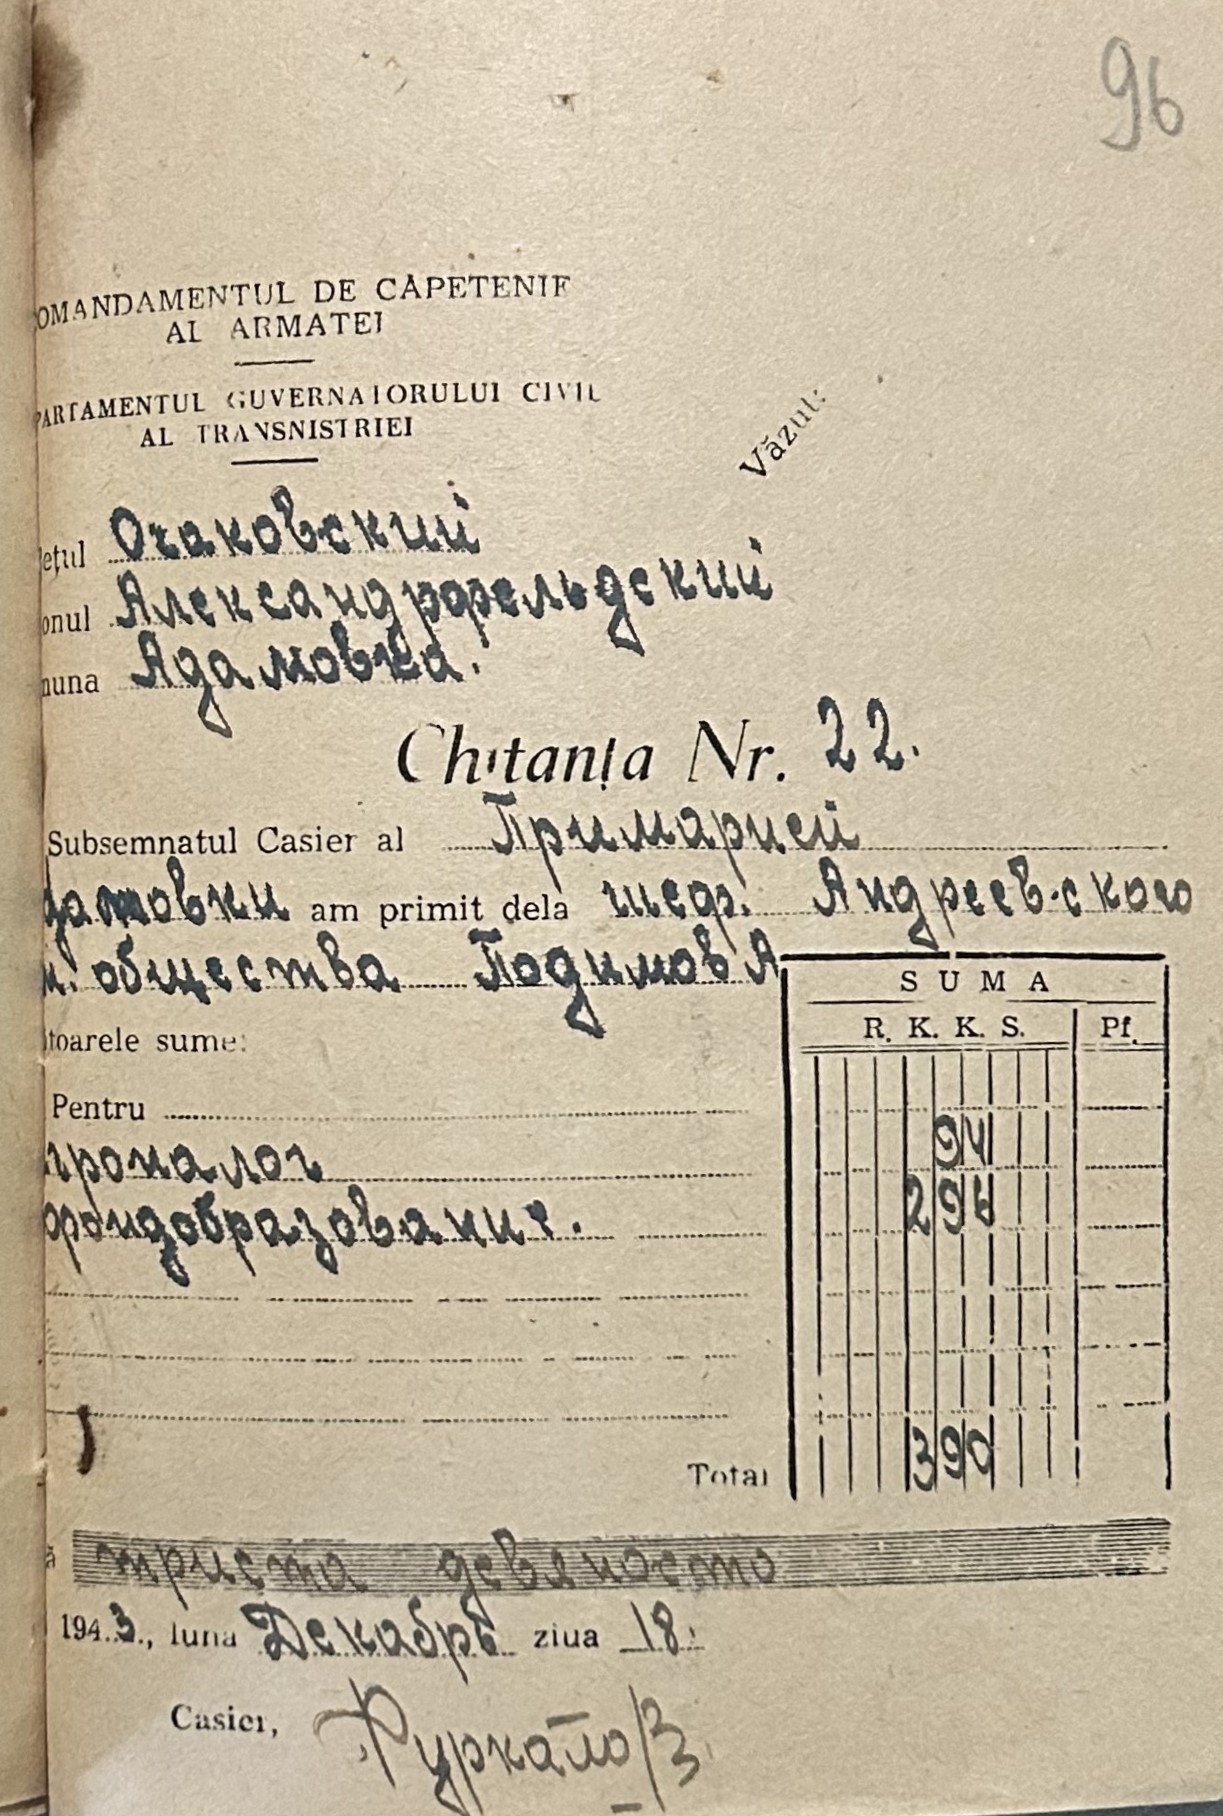 96
OMANDAMENTUL DE CĂPETENIE
AL ARMATEI
PARTAMENTUL GUVERNATORULUI CIVIL
AL TRANSNISTRIEI
Văzut:
ețul Очаковский
onul Александрфельдский
muna Адамовка.
Chitanța Nr. 22.
Subsemnatul Casier al Примарией
дамовки am primit dela шеф. Андреевского
и. общества Подимов А
SUMA
R. K. K. S. Pf.
toarele sume:
Pentru
гроналог 94
фондобразование. 296
Total 390
ă триста девяносто
1943., luna Декабрь ziua 18.
Casier,